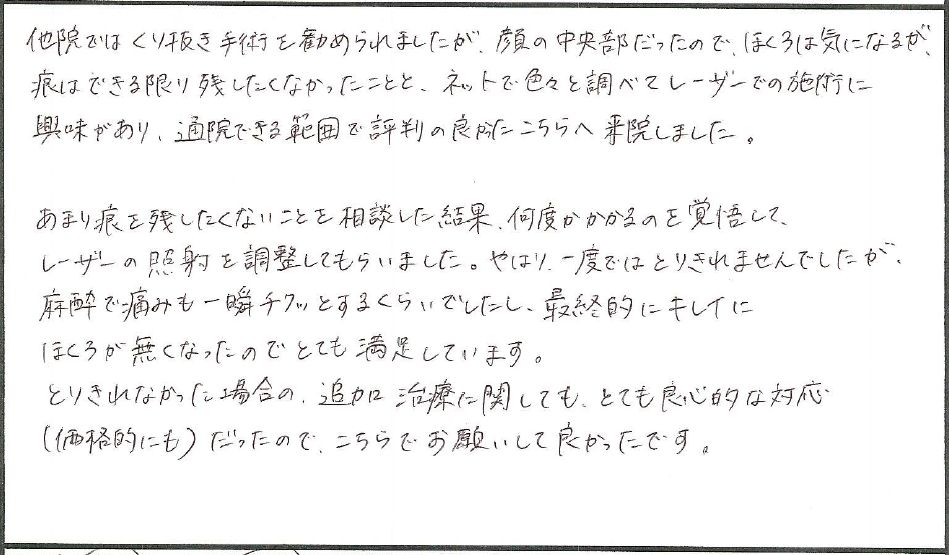 他院ではくり抜き手術を勧められましたが、顔の中央部だったので、ほくろは気になるが、
痕はできる限り残したくなかったことと、ネットで色々と調べてレーザーでの施術に
興味があり、通院できる範囲で評判の良かったこちらへ来院しました。
あまり痕を残したくないことを相談した結果、何度かかかるのを覚悟して、
レーザーの照射を調整してもらいました。やはり、一度ではとりきれませんでしたが、
麻酔で痛みも一瞬チクッとするくらいでしたし、最終的にキレイに
ほくろが無くなったのでとても満足しています。
とりきれなかった場合の、追加治療に関しても、とても良心的な対応
(価格的にも)だったので、こちらでお願いして良かったです。